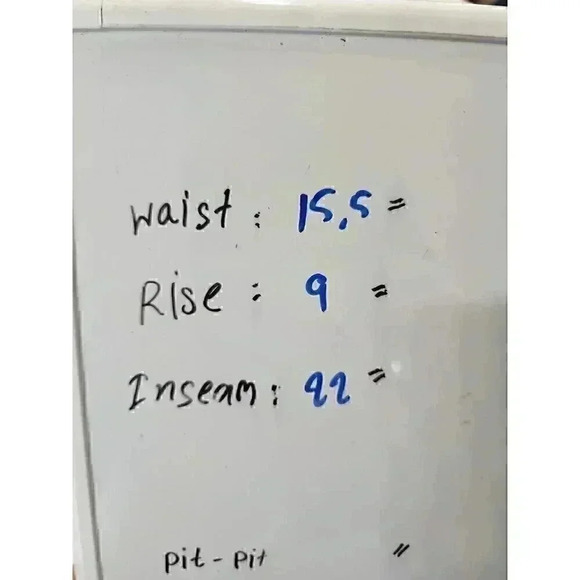 Waist : 15.5 "
Rise : 9 "
Inseam : 22 "
pit - pit "